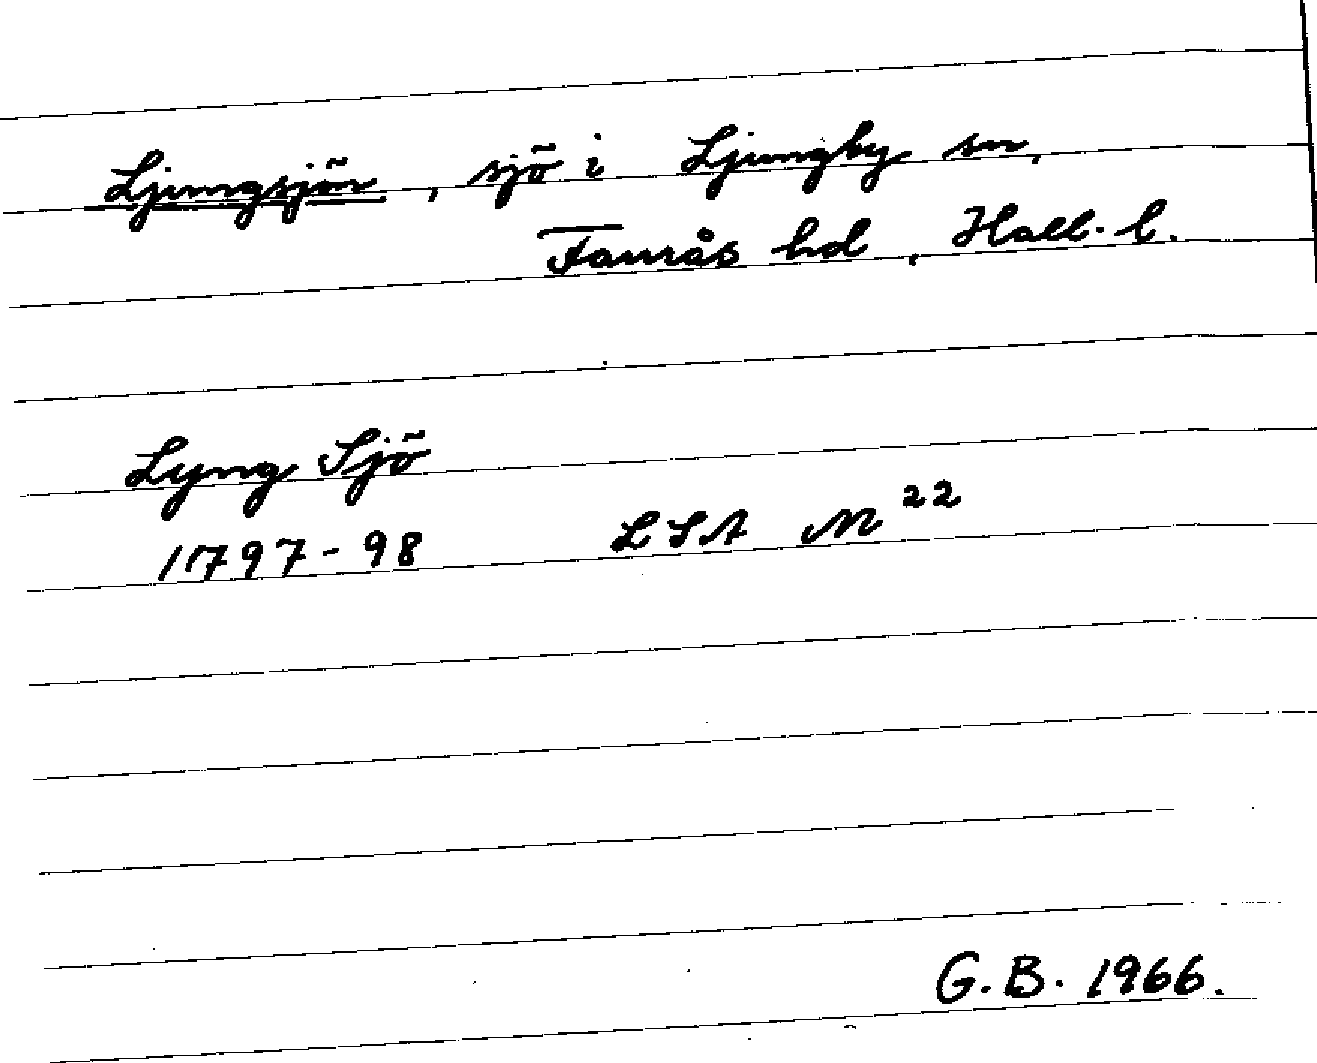 Ljungsjön, sjö i Ljungby sn,
Faurås hd, Hall. l.
Lyng Sjö
1797-98 LSA M 22
G.B. 1966.